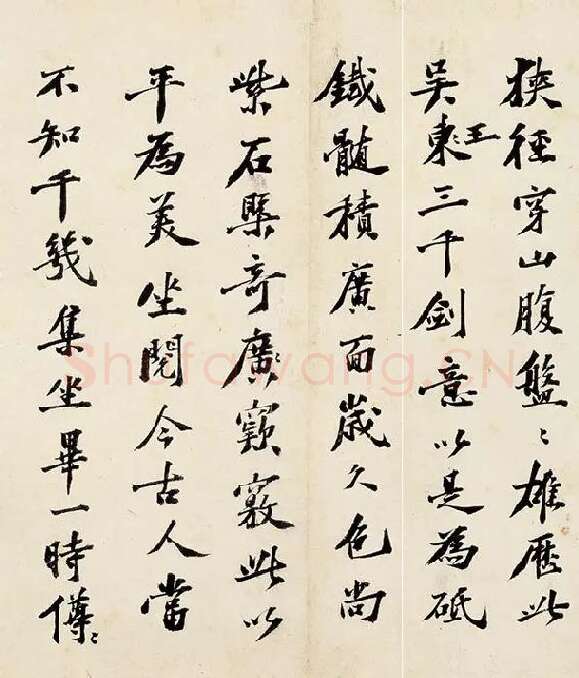 狹徑穿山腹盤〻雄壓此
吳東王三千劍意以是為砥
鐵髓積廣面歲久色尚
紫石槩奇廣窾竅此以
平為美坐閱今古人當
不知千幾集坐畢一時僔〻
Shufawang.CN